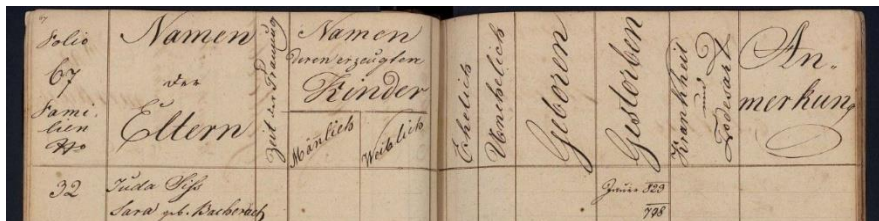 Folio
67
Fami-
lien
No
Namen
der
Eltern
Zeit der Trauung
Namen
deren erzeugten
Kinder
Mänlich
Weiblich
Ehelich
Unehelich
Geboren
Gestorben
Krankheit
und
Todesart
An-
merkung
32
Juda Siss
Sara geb. Bacherach
323
798